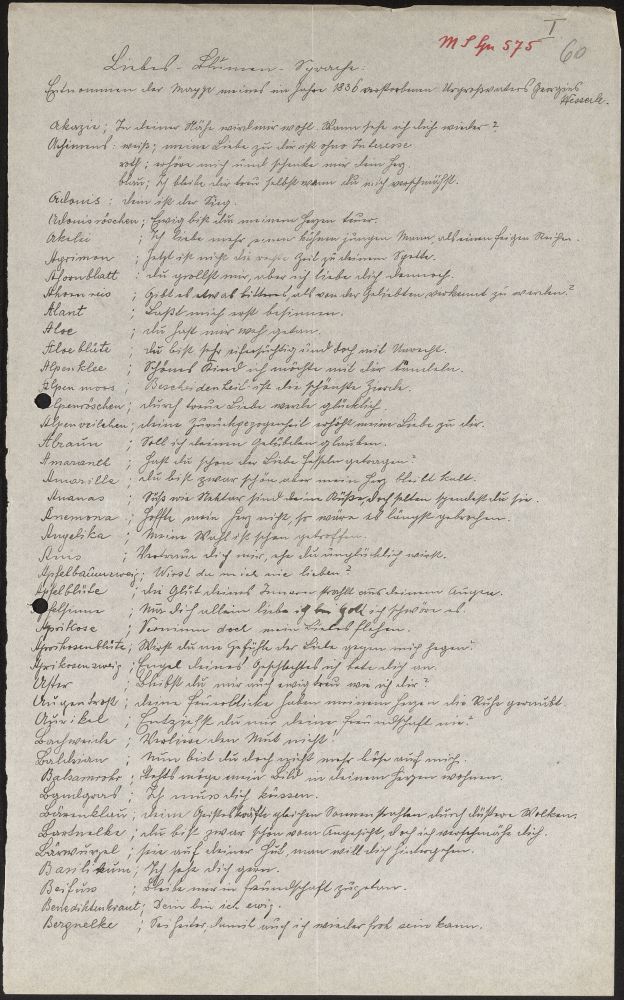 I
MS Gu 575 60
Liebes - Blumen - Sprache.
Entnommen der Mappe meines im Jahre 1836 verstorbenen Urgroßvaters Georgius
Akazie ; In deiner Nähe wird mir wohl. Wann sehe ich dich wieder?
Achimens : weiß ; meine Liebe zu dir ist ohne Interesse
roth ; erhöre mich und schenke mir dein Herz.
blau ; Ich bleibe dir treu selbst wenn du mich verschmähst.
Adonis : dein ist der Sieg.
Adonisröschen ; Ewig bist du meinem Herzen teuer.
Akelei ; Ich liebe mehr einen kühnen jungen Mann, als einen feigen Reichen.
Agrimon ; Jetzt ist nicht die rechte Zeit zu deinem Spotte.
Ahornblatt ; du grollst mir, aber ich liebe dich dennoch.
Ahornreis ; Gibt es etwas bitteres, als von der Geliebten verkannt zu werden?
Alant ; Laßt mich erst besinnen.
Aloe ; du hast mir weh getan.
Aloeblüte ; du bist sehr eifersüchtig und doch mit Unrecht.
Alpenklee ; Schönes Kind ich möchte mit dir tändeln.
Alpenmoos ; Bescheidenheit ist die schönste Zierde.
Alpenröschen ; durch treue Liebe werde glücklich.
Alpenveilchen ; deine Zurückgezogenheit erhöht meine Liebe zu dir.
Alraun ; Soll ich deinen Gelübden glauben.
Amaranth ; Hast du schon der Liebe Fesseln getragen?
Amarille ; du bist zwar schön aber mein Herz bleibt kalt.
Ananas ; Süß wie Nektar sind deine Küße, doch selten spendest du sie.
Anemona ; Hoffte mein Herz nicht, so wäre es längst gebrochen.
Angelika ; Meine Wahl ist schon getroffen.
Anis ; Vertraue dich mir, ehe du unglücklich wirst.
Apfelbaumzweig ; Wirst du mich nie lieben?
Apfelblüte ; die Glut deines Inneren strahlt aus deinem Augen.
Apfelsinne ; Nur dich allein liebe ich bei Gott ich schwöre es.
Aprikose ; Vernimm doch mein Liebesflehen.
Aprikosenblüte ; Wirst du nie Gefühle der Liebe gegen mich hegen?
Aprikosenzweig ; Engel deines Geschlechtes ich bete dich an.
Aster ; Bleibst du mir auch ewig treu wie ich dir?
Augentrost ; deine Feuerblicke haben meinem Herzen die Ruhe geraubt.
Aurikel ; Entziehst du mir deine Freundschaft nie?
Bachweide ; Verliere den Mut nicht!
Baldrian ; Nun bist du doch nicht mehr böse auf mich.
Balsamrohr ; Stehts möge mein Bild in deinem Herzen wohnen.
Bandgras ; Ich muss dich küssen.
Bärenklau ; deine Geisteskräfte gleichen Sonnenstrahlen durch düstere Wolken.
Bartnelke ; du bist zwar schön vom Angesicht, doch ich verschmähe dich.
Bärwurzel ; seie auf deiner Hut, man will dich hintergehen.
Basilikum ; Ich sehe dich gern.
Beifuss ; Bleibe mir in Freundschaft zugetan.
Benediktenkraut ; Dein bin ich ewig.
Bergnelke ; Sei heiter, damit auch ich wieder froh sein kann.